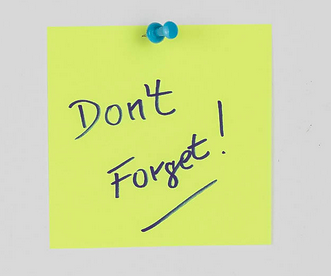 Don't
Forget!